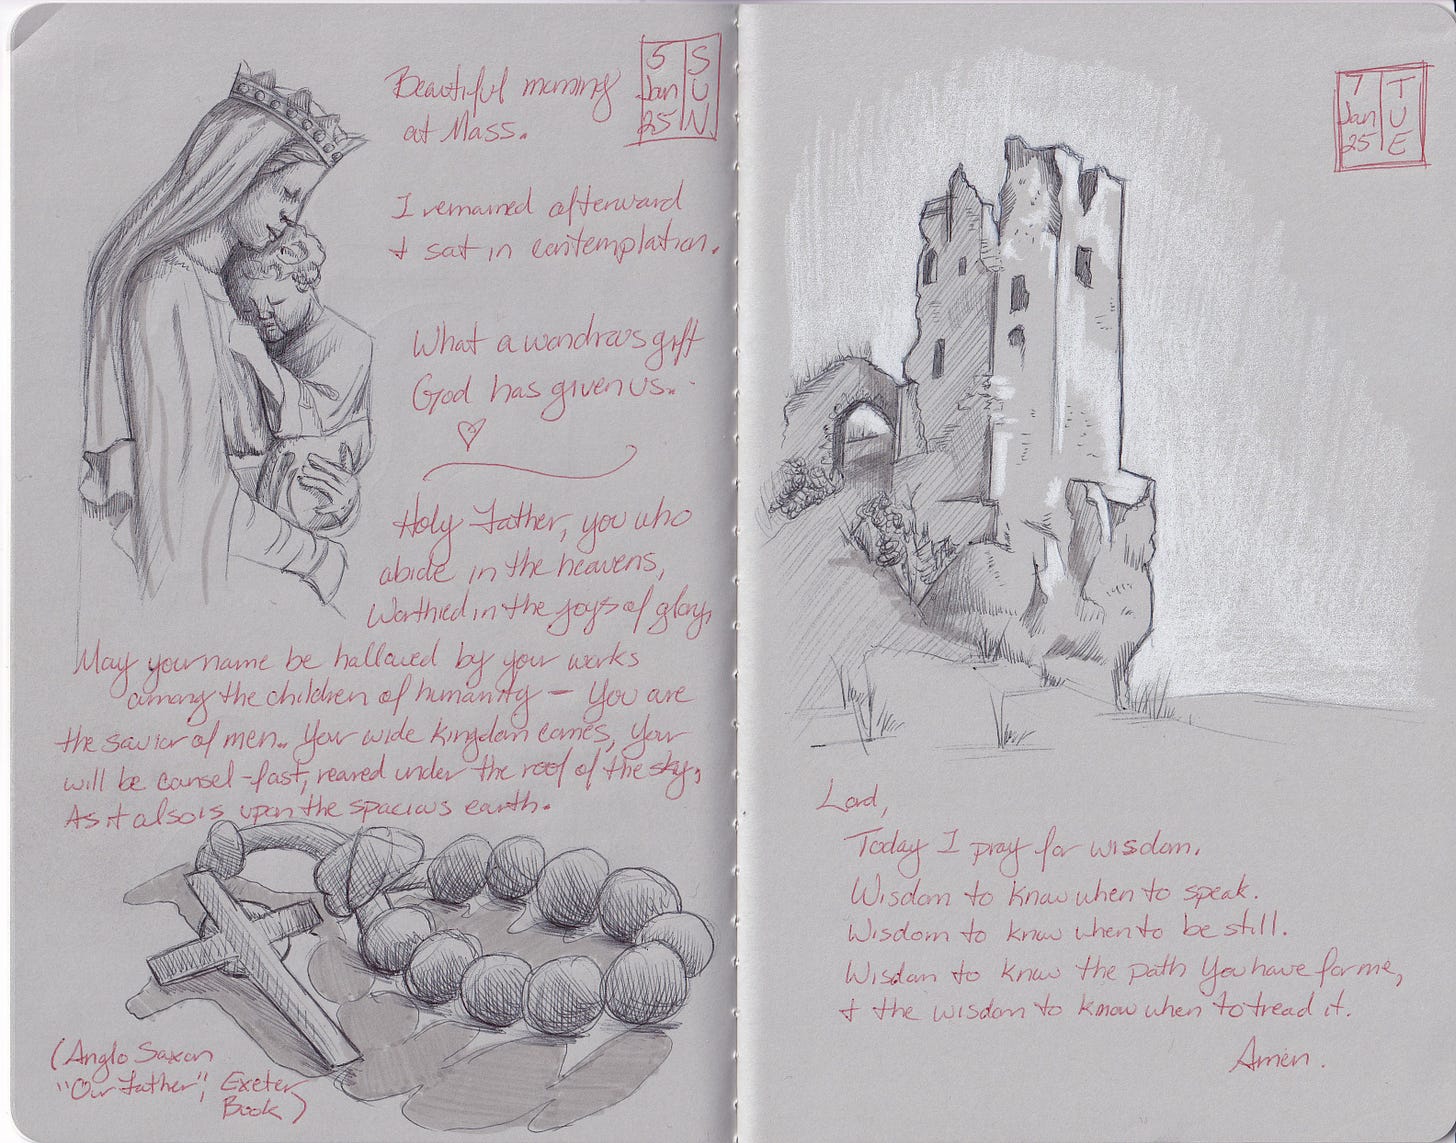 5 Jan 25 SUN.
Beautiful morning
at Mass.
I remained afterward
+ sat in contemplation.
What a wondrous gift
God has given us.
Holy Father, you who
abide in the heavens,
Worthied in the joys of glory,
May your name be hallowed by your works
among the children of humanity — You are
the savior of men. Your wide kingdom comes, Your
will be counsel-fast, reared under the roof of the sky,
As it also is upon the spacious earth.
(Anglo Saxon
"Our Father", Exeter
Book)
7 Jan 25 TUE
Lord,
Today I pray for wisdom.
Wisdom to know when to speak.
Wisdom to know when to be still.
Wisdom to know the path You have for me,
+ the wisdom to know when to tread it.
Amen.